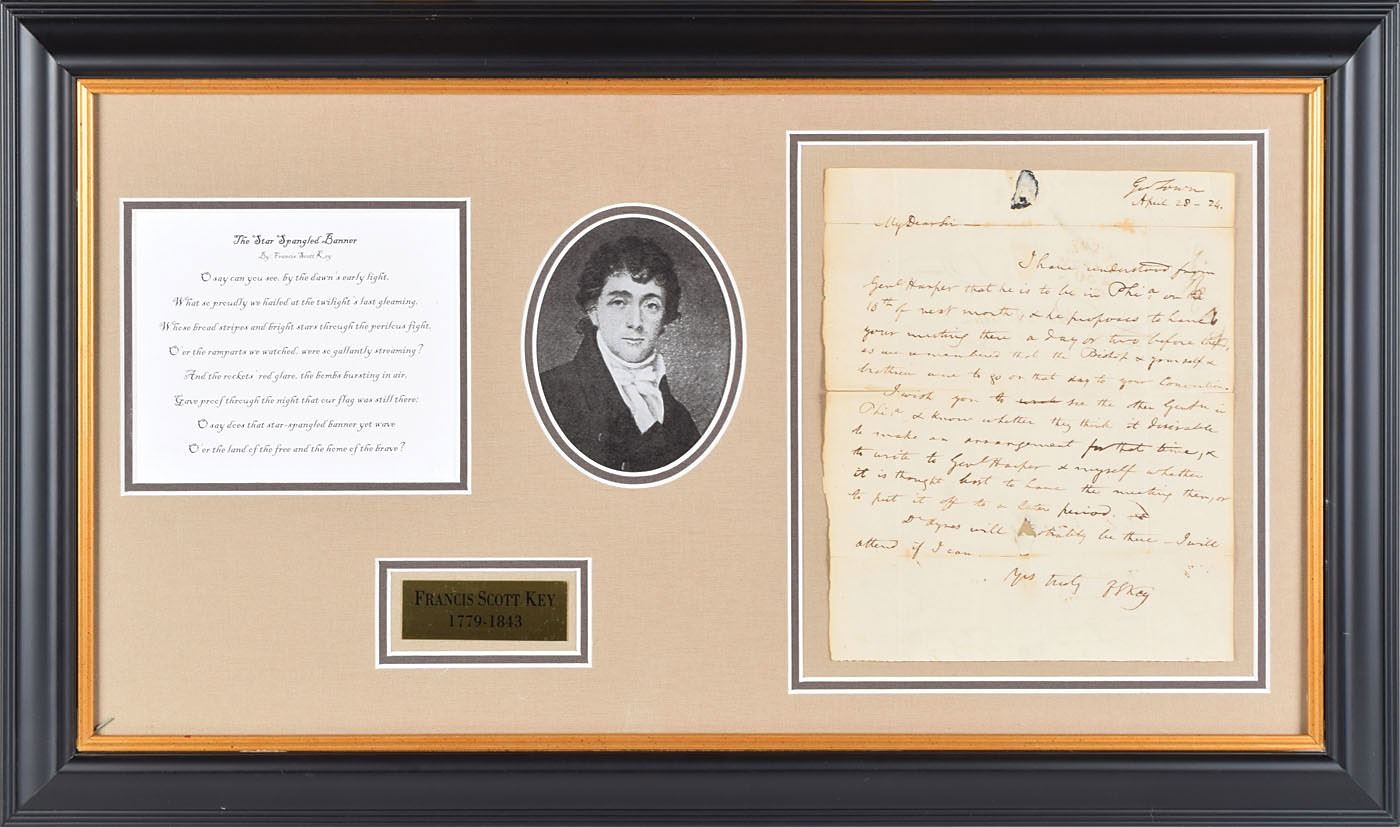 The Star Spangled Banner
By: Francis Scott Key
O say can you see, by the dawn's early light,
What so proudly we hailed at the twilight's last gleaming,
Whose broad stripes and bright stars through the perilous fight,
O'er the ramparts we watched, were so gallantly streaming?
And the rockets' red glare, the bombs bursting in air,
Gave proof through the night that our flag was still there;
O say does that star-spangled banner yet wave
O'er the land of the free and the home of the brave?
FRANCIS SCOTT KEY
1779-1843
Geo Town
April 28 - 24.
My Dear Sir -
I have understood from
Genl Harper that he is to be in Phi.a on the
18th of next month, & he proposes to have
your meeting there a day or two before that,
as we remembered that the Bishop & yourself &
brethren were to go on that day to your Convention.
I wish you to see the other Gentn in
Phi.a & know whether they think it desirable
to make an arrangement for that time, &
to write to Genl Harper & myself whether
it is thought best to have the meeting then, or
to put it off to a later period.
Dr Ayres will probably be there - I will
attend if I can.
Yrs truly F S Key